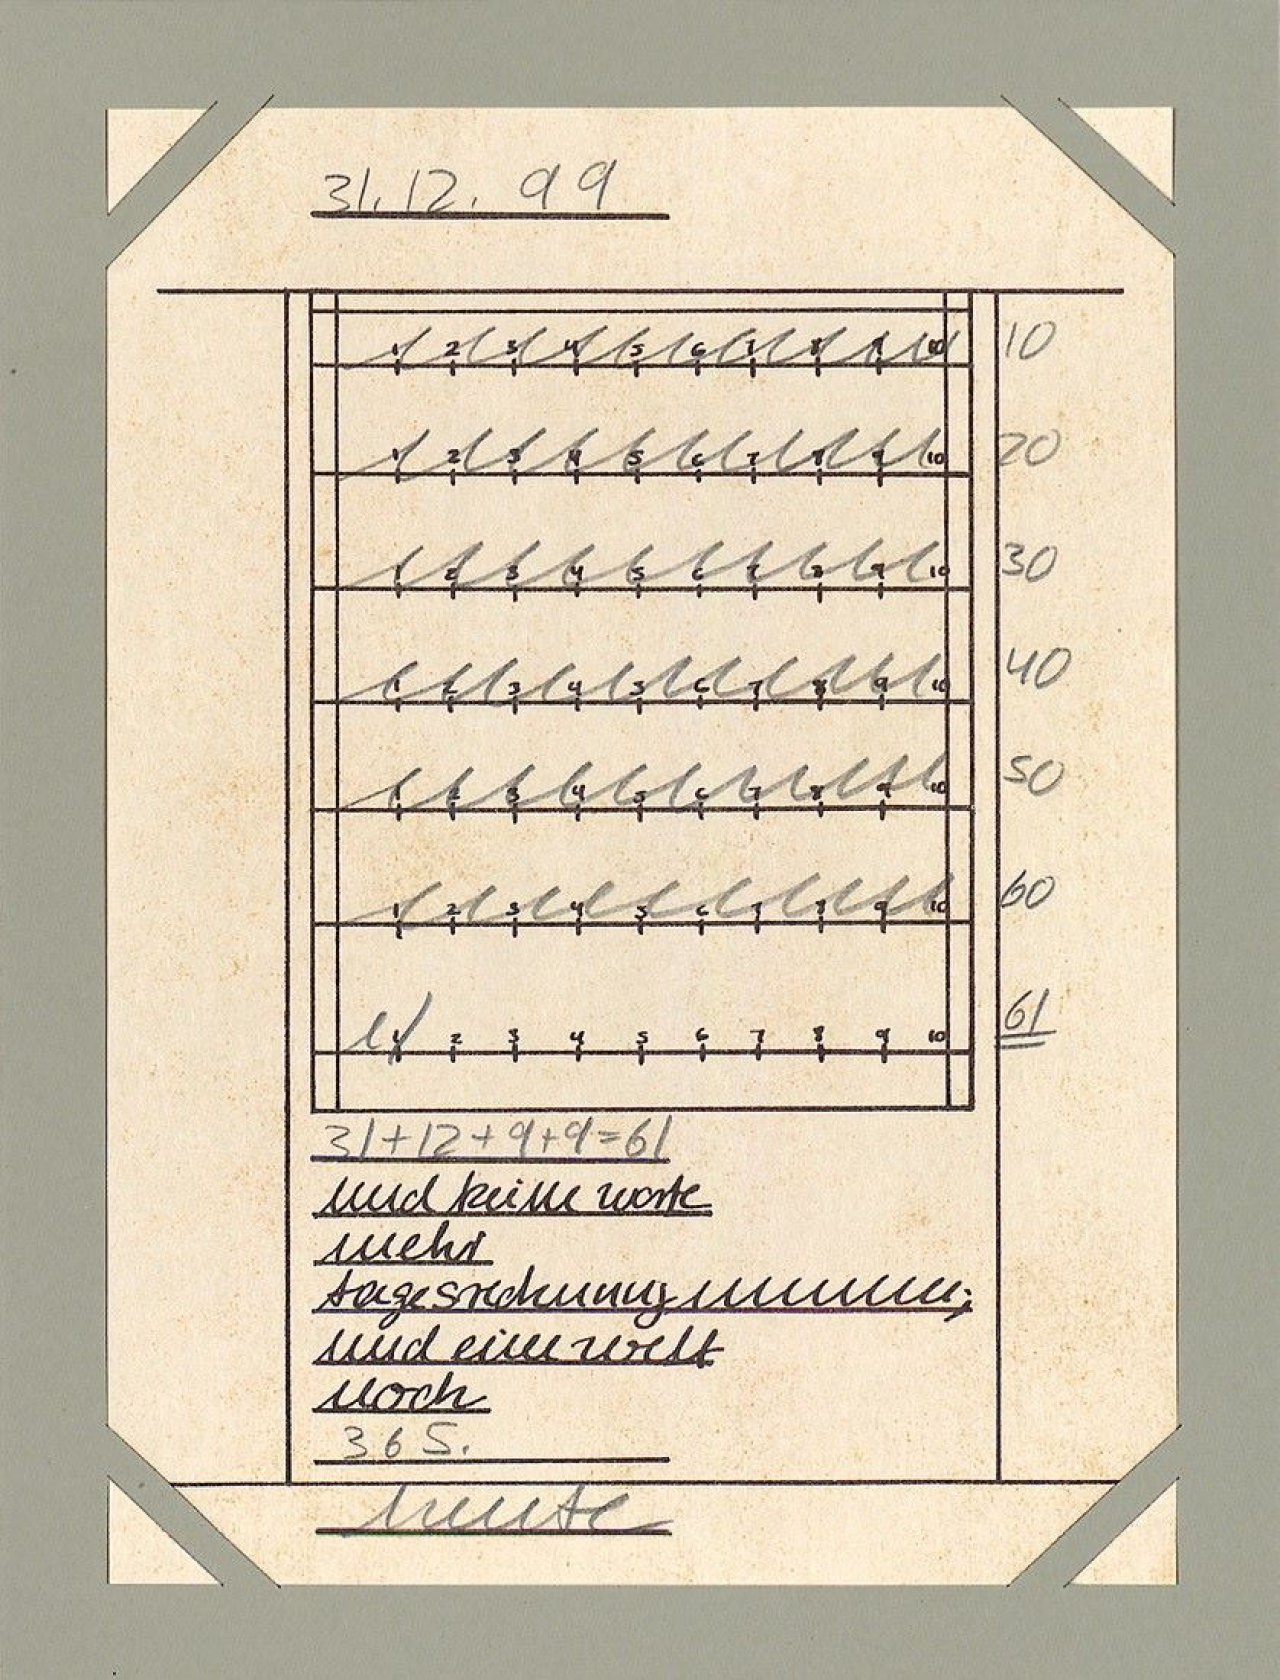 31.12.99
1 2 3 4 5 6 7 8 9 10 10
1 2 3 4 5 6 7 8 9 10 20
1 2 3 4 5 6 7 8 9 10 30
1 2 3 4 5 6 7 8 9 10 40
1 2 3 4 5 6 7 8 9 10 50
1 2 3 4 5 6 7 8 9 10 60
1 2 3 4 5 6 7 8 9 10 61
31+12+9+9=61
und keine worte
mehr
tagesrechnung
und eine welt
noch
365.
heute